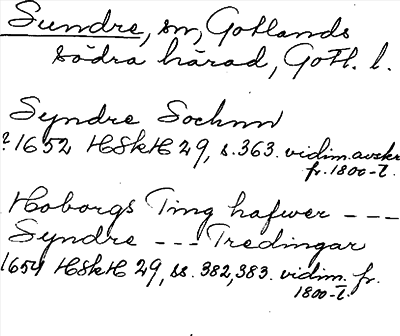 Sundre, sn, Gotlands
södra härad, Gotl. l.
Syndre Sochnn
? 1652 HSkH 29, s. 363. vidim. avskr.
fr. 1800-t.
Hoborgs Ting hafwer ---
Syndre --- Tredingar
1654 HSkH 29, ss. 382, 383. vidim. fr.
1800-t.